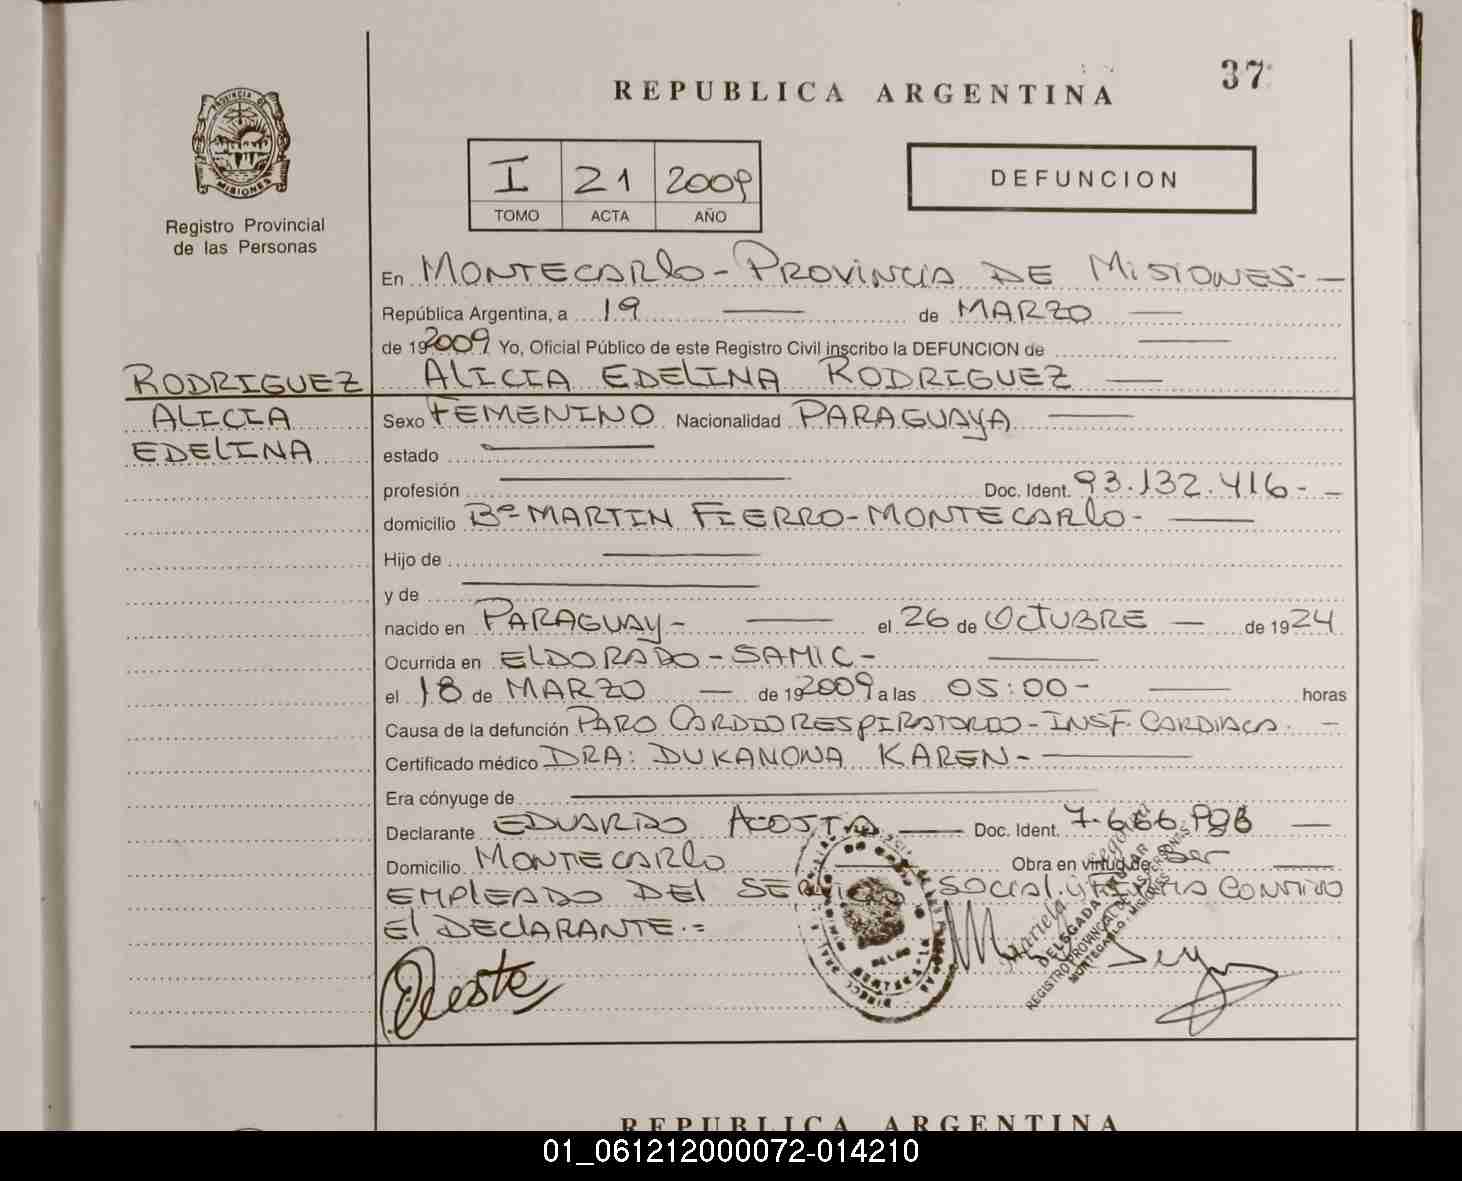 37
REPUBLICA ARGENTINA
PROVINCIA DE
MISIONES
Registro Provincial
de las Personas
I 21 2009
TOMO ACTA AÑO
DEFUNCION
En MONTECARLO - PROVINCIA DE MISIONES - —
República Argentina, a 19 — de MARZO —
de 192009 Yo, Oficial Público de este Registro Civil inscribo la DEFUNCION de —
RODRIGUEZ ALICIA EDELINA RODRIGUEZ —
ALICIA Sexo FEMENINO Nacionalidad PARAGUAYA —
EDELINA estado —
profesión — Doc. Ident. 93.132.416 - -
domicilio Bº MARTIN FIERRO - MONTECARLO - —
Hijo de —
y de —
nacido en PARAGUAY - — el 26 de OCTUBRE — de 1924
Ocurrida en ELDORADO - SAMIC - —
el 18 de MARZO — de 192009 a las 05:00 - — horas
Causa de la defunción PARO CARDIORESPIRATORIO - INSF. CARDIACA. —
Certificado médico DRA: DUKANOVA KAREN - —
Era cónyuge de —
Declarante EDUARDO ACOSTA — Doc. Ident. 7.666
Domicilio MONTECARLO — Obra en virtud de Ser —
EMPLEADO DEL SERVICIO SOCIAL. y FIRMA CONMIGO
El DECLARANTE.=
Mariela
DELEGADA TITULAR
REGISTRO PROVINCIAL DE LAS PERSONAS
MONTECARLO - MISIONES
REPUBLICA ARGENTINA
01_061212000072-014210